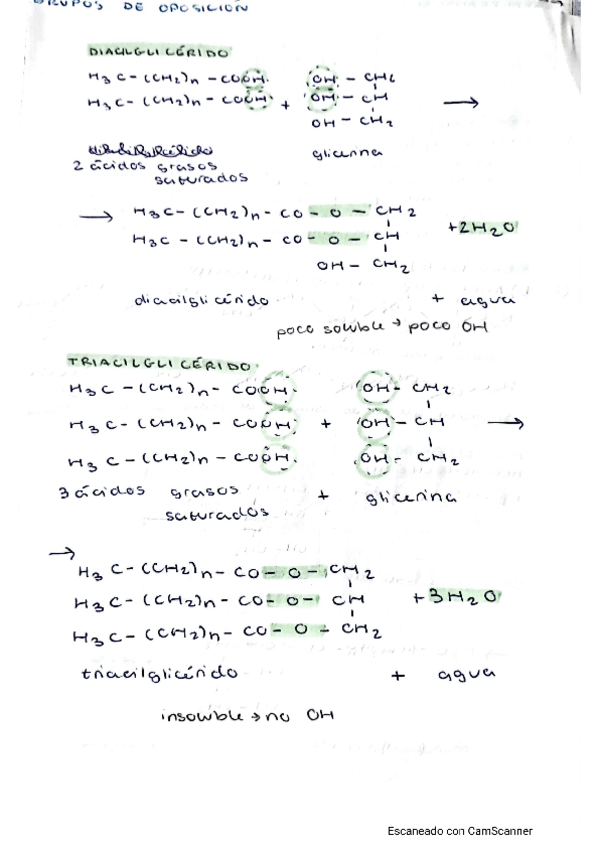 GRUPOS DE OPOSICIÓN
DIACILGLICÉRIDO
H3C-(CH2)n-COOH OH-CH2
H3C-(CH2)n-COOH + OH-CH →
OH-CH2
glicerina
2 ácidos grasos
saturados
→ H3C-(CH2)n-CO-O-CH2
H3C-(CH2)n-CO-O-CH +2H2O
OH-CH2
diacilglicérido + agua
poco soluble → poco OH
TRIACILGLICÉRIDO.
H3C-(CH2)n-COOH OH-CH2
H3C-(CH2)n-COOH + OH-CH →
H3C-(CH2)n-COOH OH-CH2
3 ácidos grasos + glicerina
saturados
→
H3C-(CH2)n-CO-O-CH2
H3C-(CH2)n-CO-O-CH +3H2O
H3C-(CH2)n-CO-O-CH2
triacilglicérido + agua
insoluble → no OH
Escaneado con CamScanner